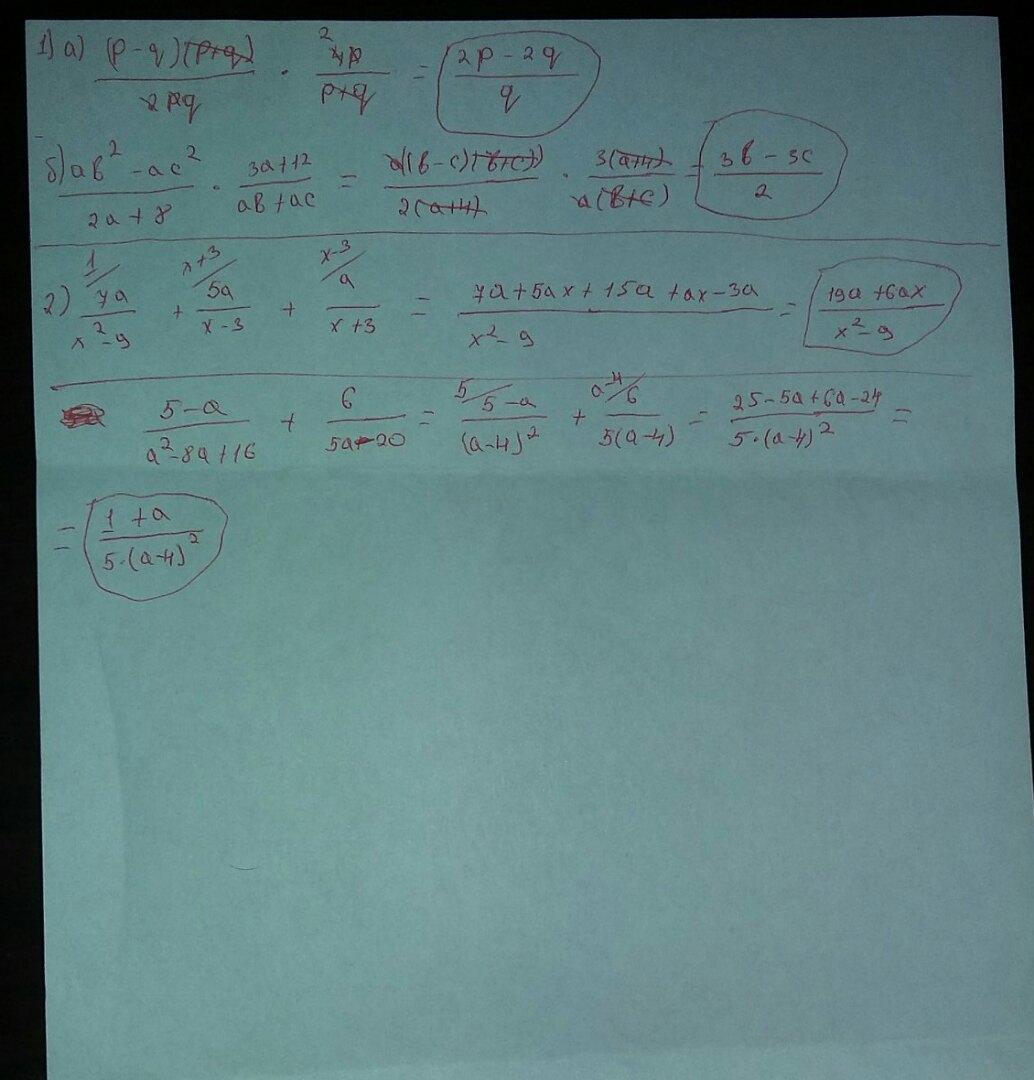 1) а) (p - q)(p+q) / 2pq · 2 4p / p+q = 2p - 2q / q
б) ab² - ac² / 2a + 8 · 3a+12 / ab+ac = a(b-c)(b+c) / 2(a+4) · 3(a+4) / a(b+c) = 3b - 3c / 2
2) 1/ 7a / x² - 9 + x+3/ 5a / x - 3 + x-3/ a / x + 3 = 7a + 5ax + 15a + ax - 3a / x² - 9 = 19a + 6ax / x² - 9
5 - a / a² - 8a + 16 + 6 / 5a - 20 = 5/ 5 - a / (a-4)² + a-4/ 6 / 5(a-4) = 25 - 5a + 6a - 24 / 5·(a-4)² =
= 1 + a / 5·(a-4)²